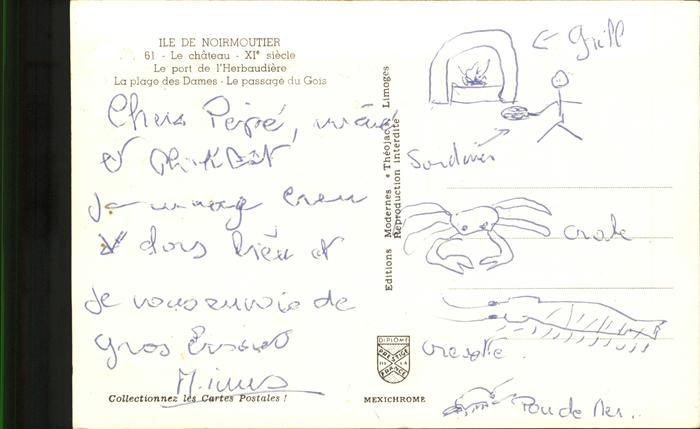 ILE DE NOIRMOUTIER
61 - Le château - XIᵉ siècle
Le port de l'Herbaudière
La plage des Dames - Le passage du Gois
Chers Pépé, mémé
et
je mange bien
dors bien et
je vous envoie de
gros
Collectionnez les Cartes Postales !
Editions Modernes « Théojac » Limoges
Reproduction interdite
DIPLOME
PRESTIGE
DE LA
FRANCE
MEXICHROME
Grill
Sardines
Crabe
crevette.
Pou de Mer..